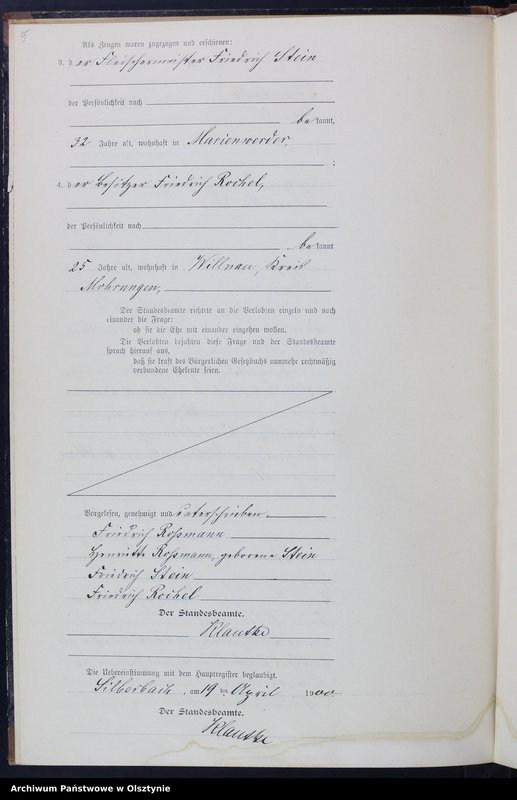 5
Als Zeugen waren zugezogen und erschienen:
3. der Fleischermeister Friedrich Stein
der Persönlichkeit nach
be kannt,
32 Jahre alt, wohnhaft in Marienwerder,
;
4. der Besitzer Friedrich Rochel,
der Persönlichkeit nach
be kannt
25 Jahre alt, wohnhaft in Willnau, Kreis
Mohrungen,
Der Standesbeamte richtete an die Verlobten einzeln und nach
einander die Frage:
ob sie die Ehe mit einander eingehen wollen.
Die Verlobten bejahten diese Frage und der Standesbeamte
sprach hierauf aus,
daß sie kraft des Bürgerlichen Gesetzbuchs nunmehr rechtmäßig
verbundene Eheleute seien.
Vorgelesen, genehmigt und unterschrieben.
Friedrich Roßmann
Henriette Roßmann, geborene Stein
Friedrich Stein
Friedrich Rochel
Der Standesbeamte.
Klautke
Die Uebereinstimmung mit dem Hauptregister beglaubigt.
Silberbach, am 19 ten April 1900.
Der Standesbeamte.
Klautke
Archiwum Państwowe w Olsztynie